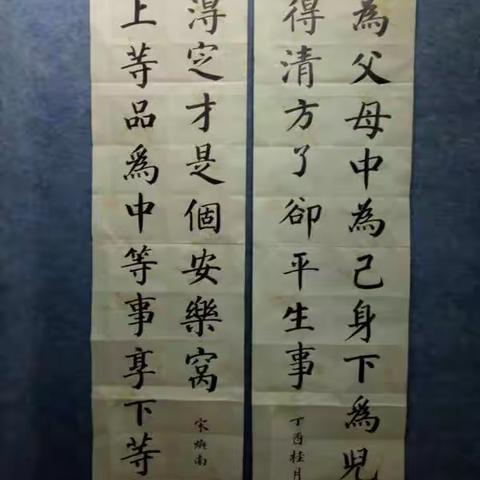 為父母中為己身下爲兒
得清方了卻平生事
丁酉桂月
得定才是個安樂窩
宋 南
上等品爲中等事享下等